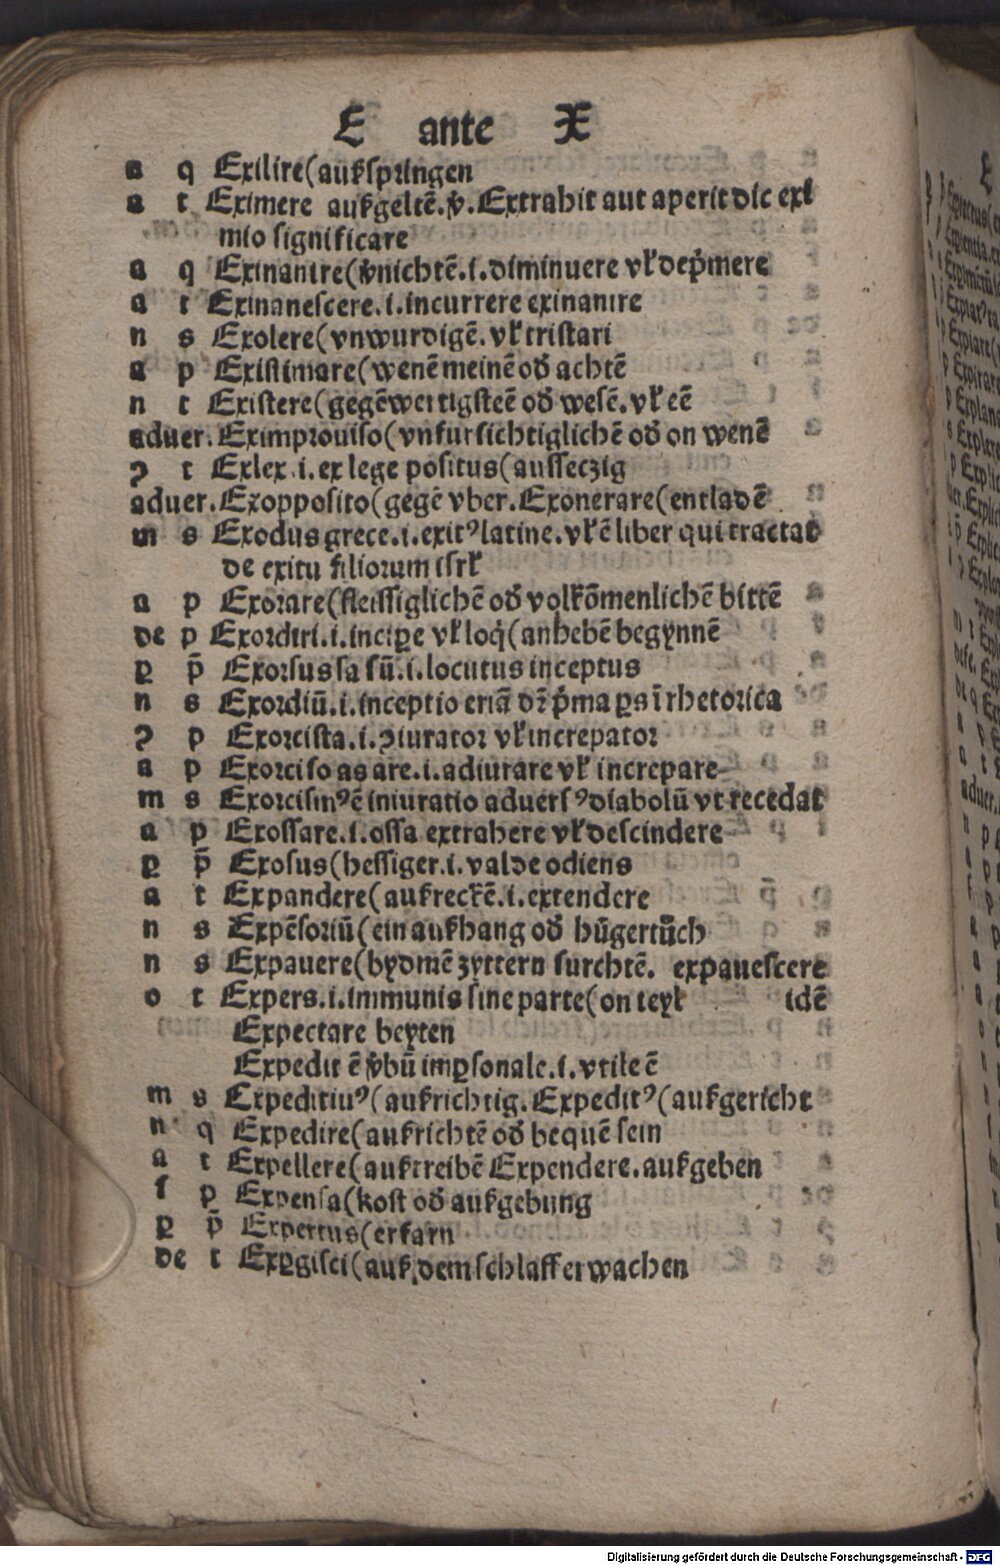 E ante X
a q Exilire(aufspringen
a t Eximere aufgeltē.v̓.Extrahit aut aperit dic exi
mio significare
a q Exinanire(v̓nichtē.i.diminuere vꝉ dep̄mere
a t Exinanescere.i.incurrere exinanire
n s Exolere(vnwurdigē.vꝉ tristari
a p Existimare(wenē meinē od̓ achtē
n t Existere(gegēwertigsteē od̓ wesē.vꝉ eē
aduer.Eximprouiso(vnfursichtiglichē od̓ on wenē
ꝯ t Exlex.i.ex lege positus(ausseczig
aduer.Exopposito(gegē vber.Exonerare(entladē
m s Exodus grece.i.exitꝰ latine.vꝉ ē liber qui tractat
de exitu filiorum isrꝉ
a p Exorare(fleissiglichē od̓ volkōmenlichē bittē
de p Exordiri.i.incipꝑe vꝉ loq̇(anhebē begynnē
ꝑ p̄ Exorsus sa sū.i.locutus inceptus
n s Exordiū.i.inceptio eciā dr̄ p̄ma ꝑs ī rhetorica
ꝯ p Exorcista.i.ꝯiurator vꝉ increpator
a p Exorciso as are.i.adiurare vꝉ increpare
m s Exorcismꝰ ē iniuratio aduersꝰ diabolū vt recedat
a p Exossare.i.ossa extrahere vꝉ descindere
ꝑ p̄ Exosus(hessiger.i.valde odiens
a t Expandere(aufreckē.i.extendere
n s Expēsoriū(ein aufhang od̓ hūgertůch
n s Expauere(bydmē zyttern furchtē. expauescere
o t Expers.i.immunis sine parte(on teyl idē
Expectare beyten
Expedit ē v̓bū imꝑsonale.i.vtile ē
m s Expeditiuꝰ(aufrichtig.Expeditꝰ(aufgericht
n q Expedire(aufrichtē od̓ bequē sein
a t Expellere(auftreibē Expendere.aufgeben
f p Expensa(kost od̓ aufgebung
ꝑ p̄ Expertus(erfarn
de t Exꝑgisci(auf dem schlaff erwachen
Digitalisierung gefördert durch die Deutsche Forschungsgemeinschaft - DFG